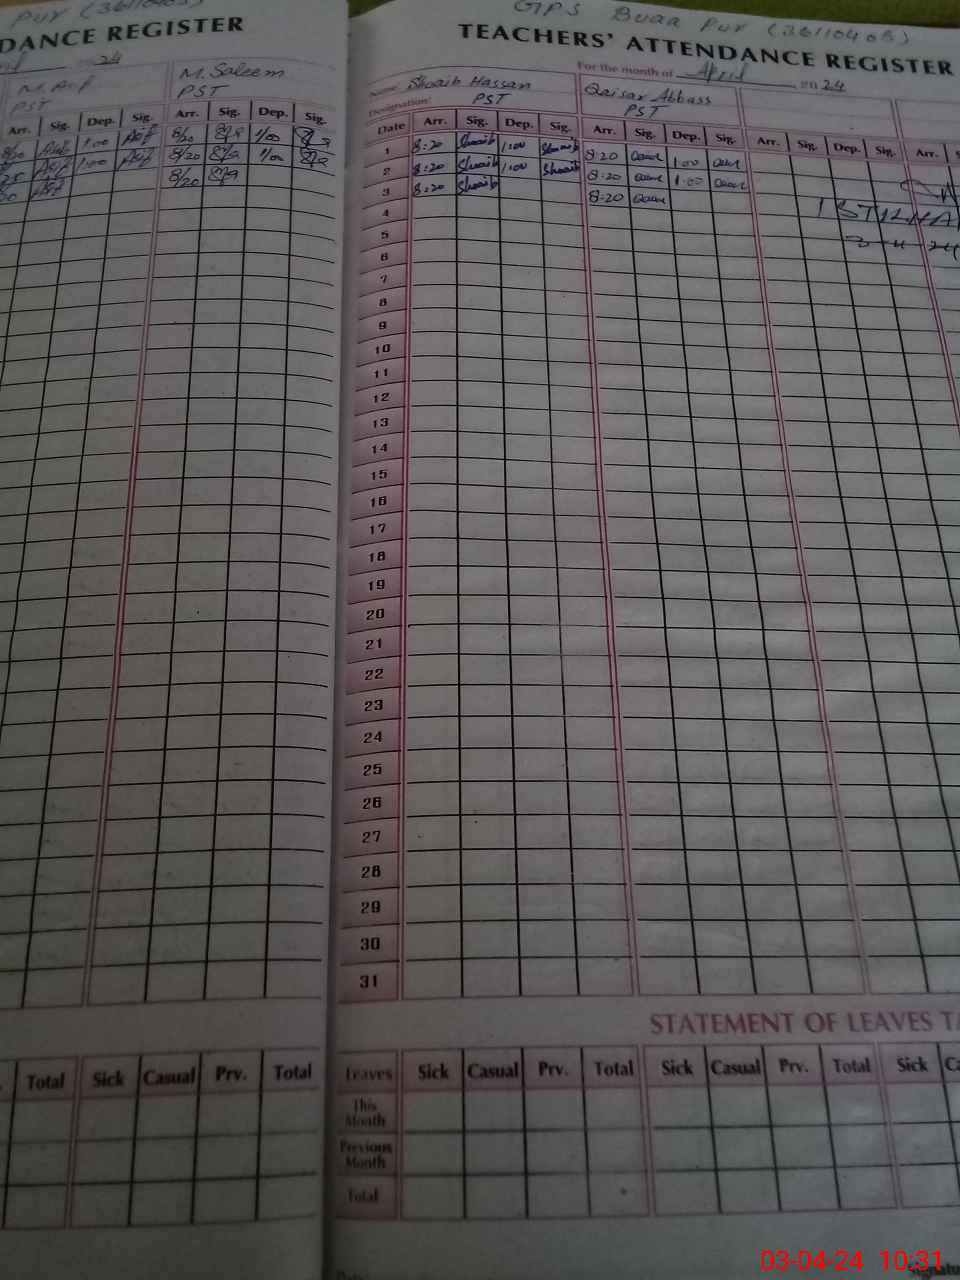 Pur (36110403)
DANCE REGISTER
24
M. Arif
M. Saleem
PST
PST
Arr. Sig. Dep. Sig. Arr. Sig. Dep. Sig.
8/20 Arif 1:00 Arif 8/20 1/00
Arif 1:00 Arif 8/20 1/00
Arif 8/20
Total Sick Casual Prv. Total
GPS Buaa Pur (36110403)
TEACHERS' ATTENDANCE REGISTER
For the month of April 2024
Name Shoaib Hassan Qaisar Abbass
Designation PST PST
Date Arr. Sig. Dep. Sig. Arr. Sig. Dep. Sig. Arr. Sig. Dep. Sig. Arr. S
1 8:20 Shoaib 1:00 Shoaib 8:20 1:00
2 8:20 Shoaib 1:00 Shoaib 8:20 1:00
3 8:20 Shoaib 8:20
4
5
6
7
8
9
10
11
12
13
14
15
16
17
18
19
20
21
22
23
24
25
26
27
28
29
30
31
3-4-24
STATEMENT OF LEAVES TA
Leaves Sick Casual Prv. Total Sick Casual Prv. Total Sick Ca
This Month
Previous Month
Total
03-04-24 10:31